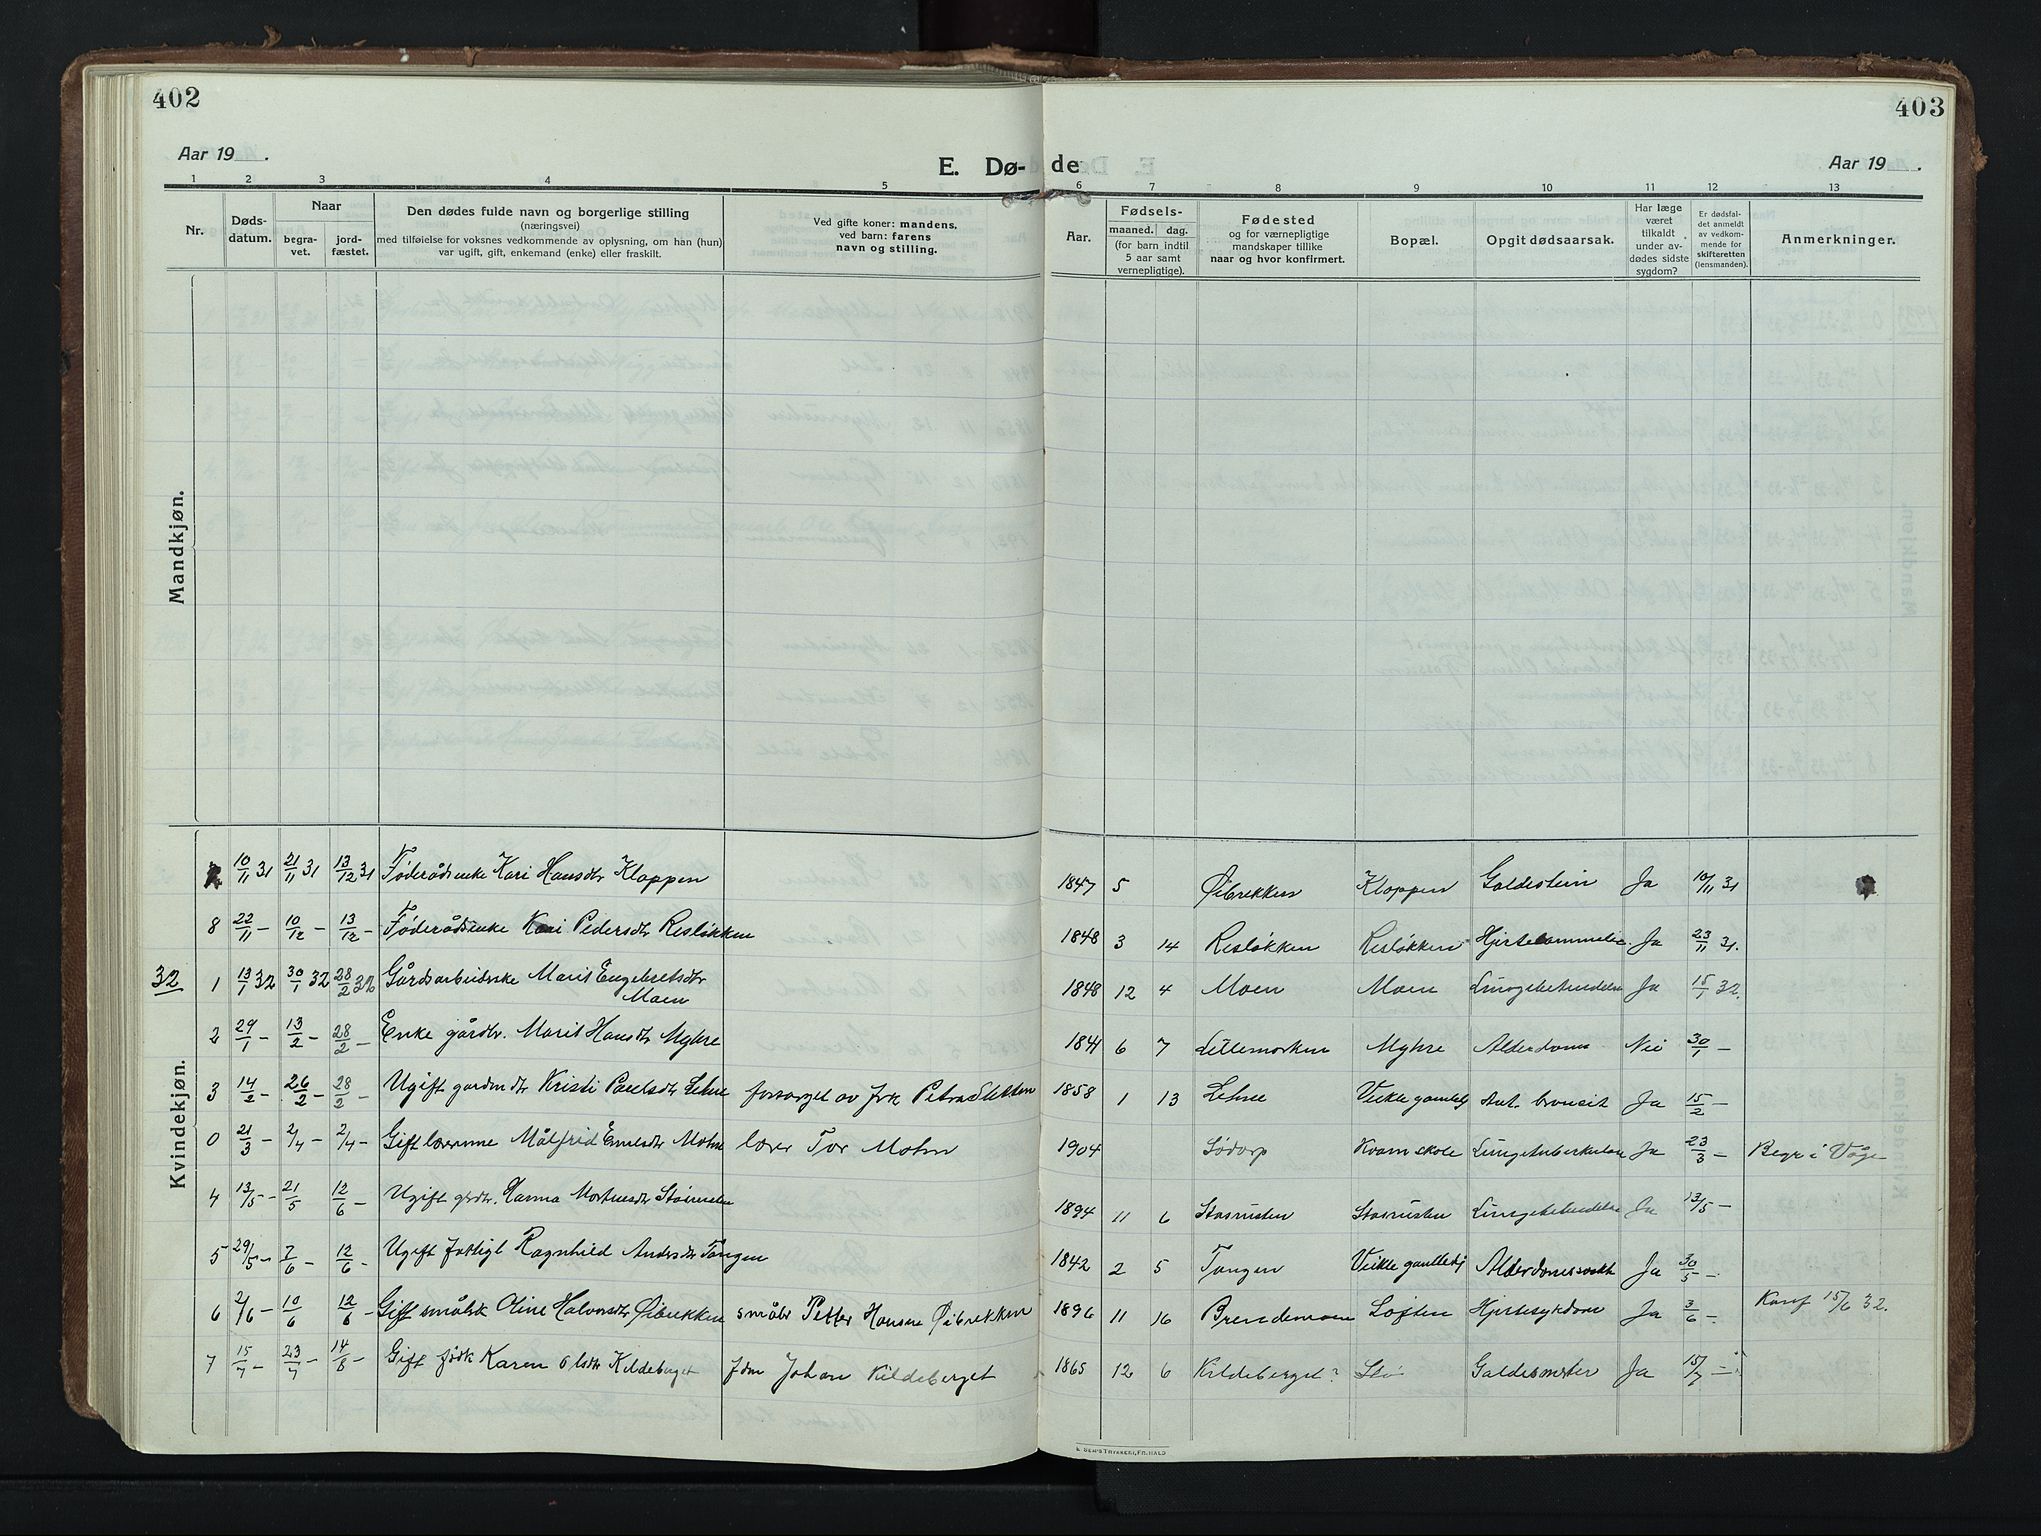 402
403
Aar 19 .
E. Dø- de
Aar 19 .
1 2 3 4 5 6 7 8 9 10 11 12 13
Nr.
Døds-
datum.
Naar
begra-
vet.
jord-
fæstet.
Den dødes fulde navn og borgerlige stilling
(næringsvei)
med tilføielse for voksnes vedkommende av oplysning, om han (hun)
var ugift, gift, enkemand (enke) eller fraskilt.
Ved gifte koner: mandens,
ved barn: farens
navn og stilling.
Aar.
Fødsels-
maaned. dag.
(for barn indtil
5 aar samt
vernepligtige).
Fødested
og for værnepligtige
mandskaper tillike
naar og hvor konfirmert.
Bopæl.
Opgit dødsaarsak.
Har læge
været
tilkaldt
under av-
dødes sidste
sygdom?
Er dødsfal-
det anmeldt
av vedkom-
mende for
skifteretten
(lensmanden).
Anmerkninger.
Mandkjøn.
Kvindekjøn.
7 10/11 31 21/11 31 13/12 31 Føderådsenke Kari Hansdtr Kloppen 1847 5 Øibrekken Kloppen Galdestein Ja 10/11 31
8 22/11 - 10/12 - 13/12 - Føderådsenke Kari Pedersdtr Risløkken 1848 3 14 Risløkken Risløkken Ja 23/11 31.
32 1 13/1 32 30/1 32 28/2 32 Gårdsarbeiderske Marit Engebretsdtr
Moen 1848 12 4 Moen Moen Lungebetendelse Ja 15/1 32.
2 29/1 - 13/2 - 28/2 - Enke gårdbr. Marit Hansdtr Myhre 1841 6 7 Lillemorken Myhre Alderdoms Nei 30/1 -
3 14/2 - 26/2 - 28/2 - Ugift Kristi Paulsdtr Lehne forsørget av Petra Sletten 1858 1 13 Lehne Veikle gamlehj Akt. bronsit Ja 15/2 -
0 21/3 - 2/4 - 2/4 - Gift lærerinne Målfrid Emilsdtr Mohn lærer Tor Mohn 1904 Sødorp Kvam skole Lungetuberkulose Ja 23/3 - Begr i Vågå
4 13/5 - 21/5 12/6 - Ugift grdtr. Hanna Mortensdtr Stoirusten 1894 11 6 Stoirusten Stoirusten Lungebetendelse Ja 13/5 -
5 29/5 - 7/6 - 12/6 - Ugift fattigl Ragnhild Andersdtr Tangen 1842 2 5 Tangen Veikle gamlehj Alderdomssvekk Ja 30/5 -
6 2/6 - 10/6 12/6 - Gift småbrk Oline Halvorsdtr Øibrekken småbr Petter Hansen Øibrekken 1896 11 16 Brendemoen Løften Hjertesykdom Ja 3/6 - Konf 15/6 32.
7 15/7 - 23/7 - 14/8 - Gift fødk Karen Olsdtr Kildeberget fdm Johan Kildeberget 1865 12 6 Kildeberget? Galdesmerter Ja 15/7 -
E. SEM'S TRYKKERI, FR. HALD